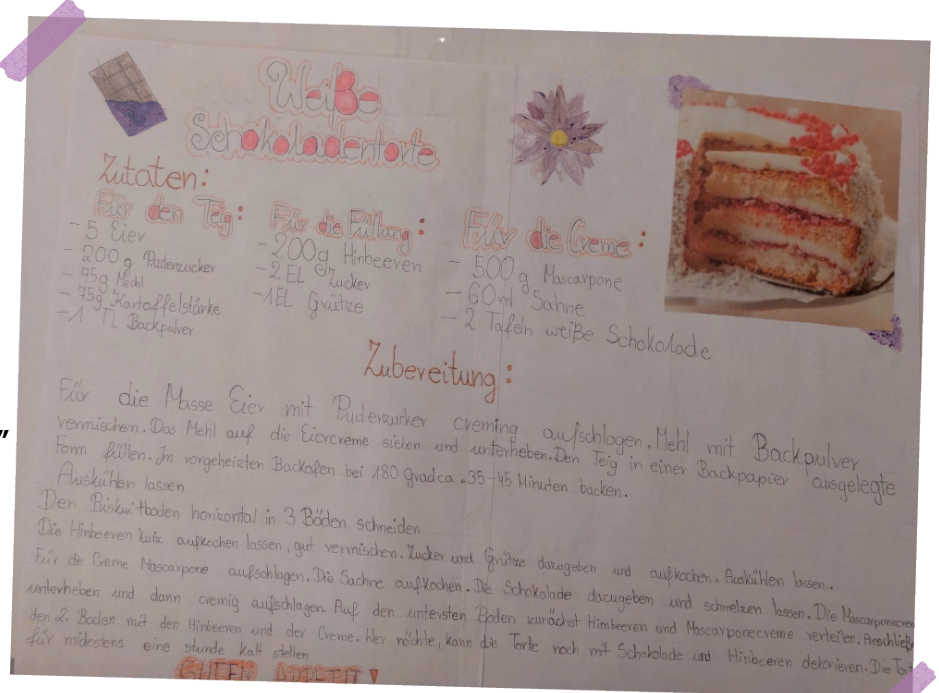 Weiße
Schokoladentorte
Zutaten:
Für den Teig:
- 5 Eier
- 200 g Puderzucker
- 75g Mehl
- 75g Kartoffelstärke
- 1 TL Backpulver
Für die Füllung:
- 200g Hinbeeren
- 2 EL Zucker
- 1EL Grütze
Für die Creme:
- 500 g Mascarpone
- 60ml Sahne
- 2 Tafeln weiße Schokolade
Zubereitung:
Für die Masse Eier mit Puderzucker creming aufschlagen. Mehl mit Backpulver
vermischen. Das Mehl auf die Eiercreme sieben und unterheben. Den Teig in einer Backpapier ausgelegte
Form füllen. Im vorgeheizten Backofen bei 180 Grad ca. 35-45 Minuten backen.
Auskühlen lassen
Den Biskuitboden horizontal in 3 Böden schneiden
Die Hinbeeren kurz aufkochen lassen, gut vermischen. Zucker und Grütze dazugeben und aufkochen. Auskühlen lassen.
Für die Creme Mascarpone aufschlagen. Die Sachne aufkochen. Die Schokolade dazugeben und schmelzen lassen. Die Mascarponecrem
unterheben und dann cremig aufschlagen. Auf den untersten Boden zunächst Himbeeren und Mascarponecreme verteilen. Anschließe
den 2. Boden mit den Hinbeeren und der Creme. Wer möchte, kann die Torte noch mit Schokolade und Hinbeeren dekorieren. Die Tort
für midestens eine stunde kalt stellen
GUTEN APPETIT!
"